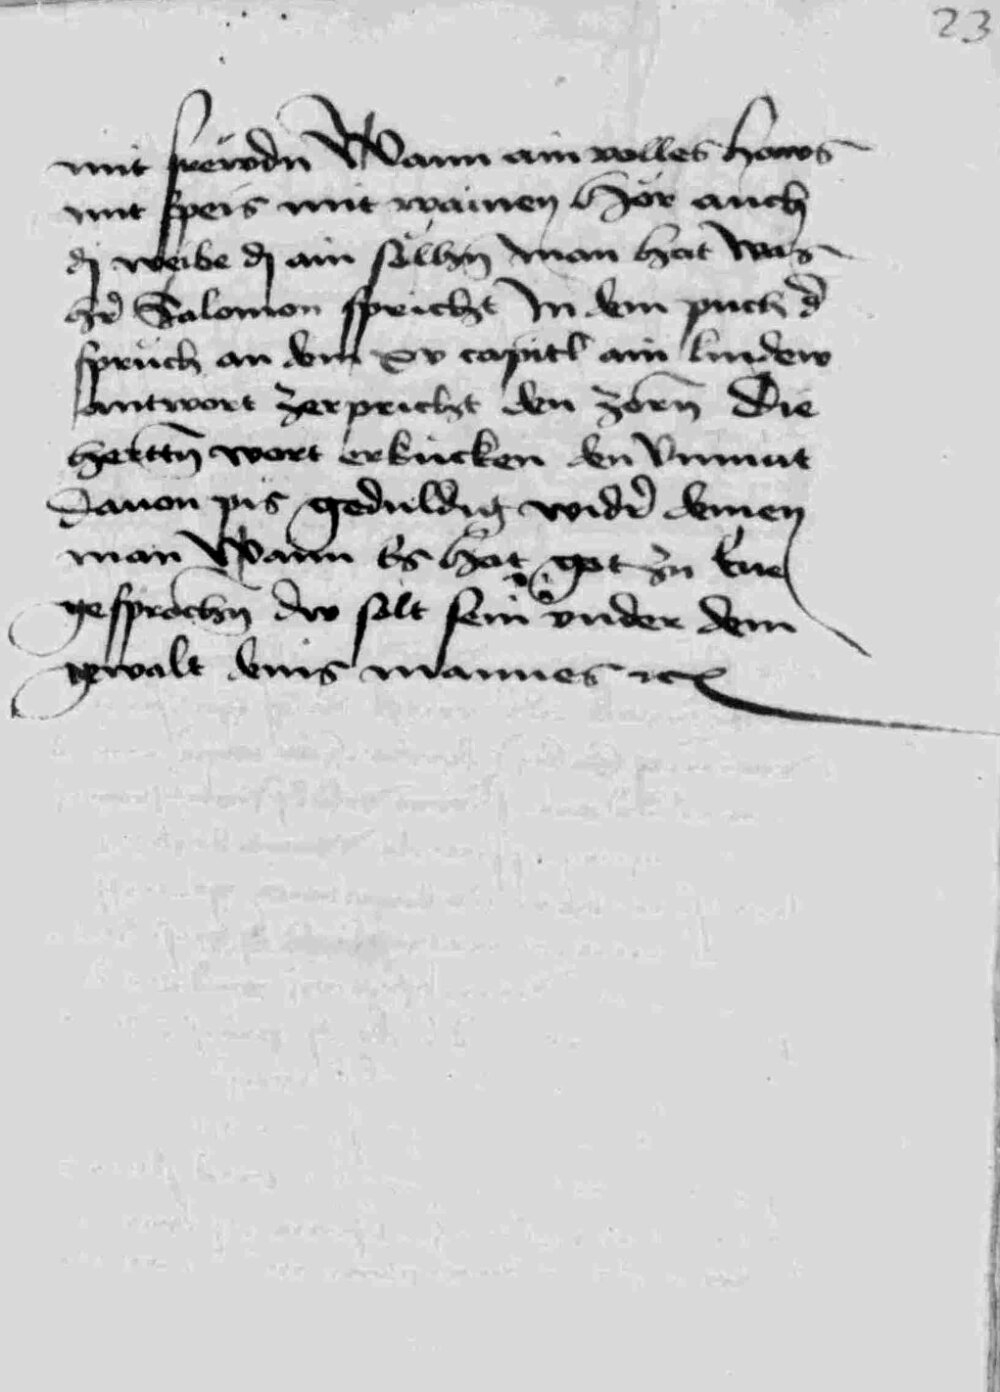 23
mit frewdn Wann ain volles haws
mit speis mit wainen Hör auch
dj weibe dj ain sölhn man hat was
hr̄ Salomon spricht In dem puch d̄
sprüch an dem xv capitl ain linders
antwort zerpricht den zorn̄ Die
hertn̄ wort erkücken den Vnmut
Dauon pis geduldig wid̄ deinen
man Wann Es hat got zu Eue
gesprochn̄ dw solt sein vnder dem
gewalt deins mannes etc